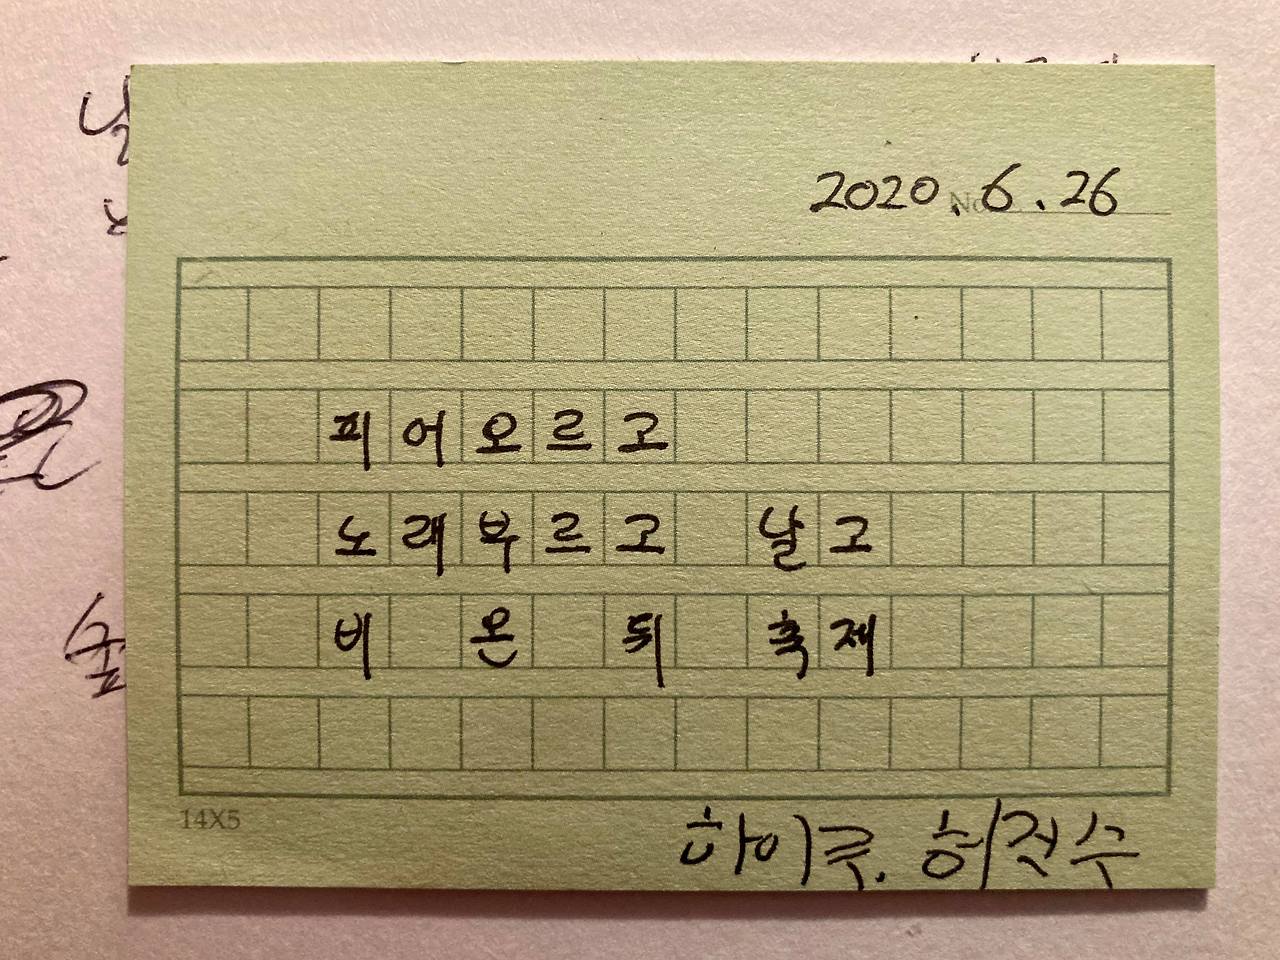 2020.6.26
No.
피어오르고
노래부르고 날고
비 온 뒤 축제
14X5
하이쿠. 허진수